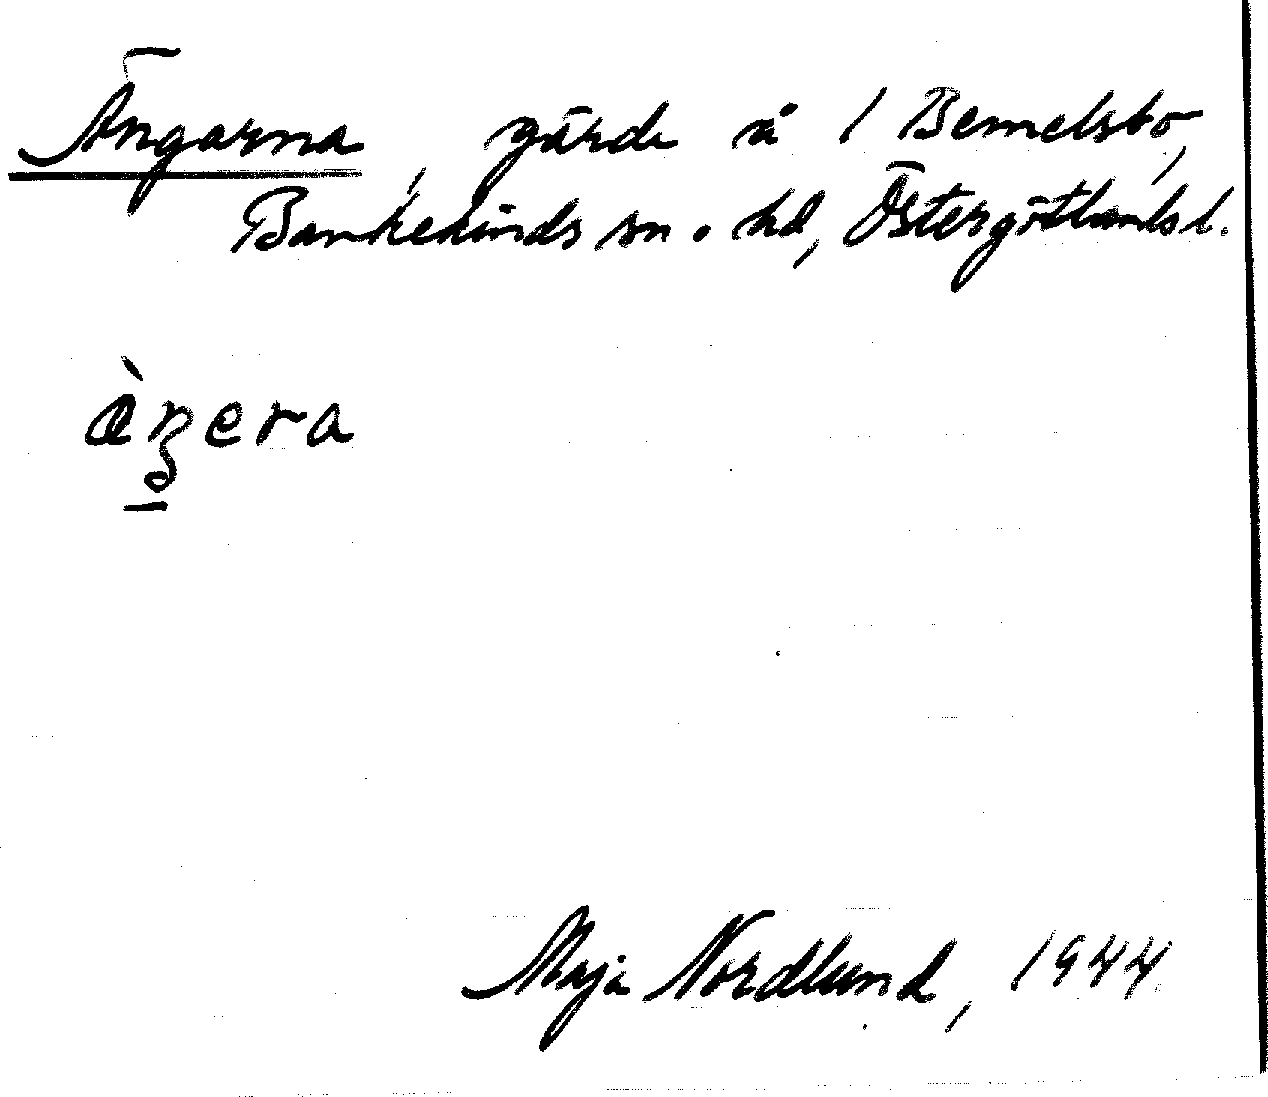 Ängarna, gärde å 1 Bemelsbo,
Bankekinds sn o. hd, Östergötlands l.
àŋera
Maja Nordlund, 1944.